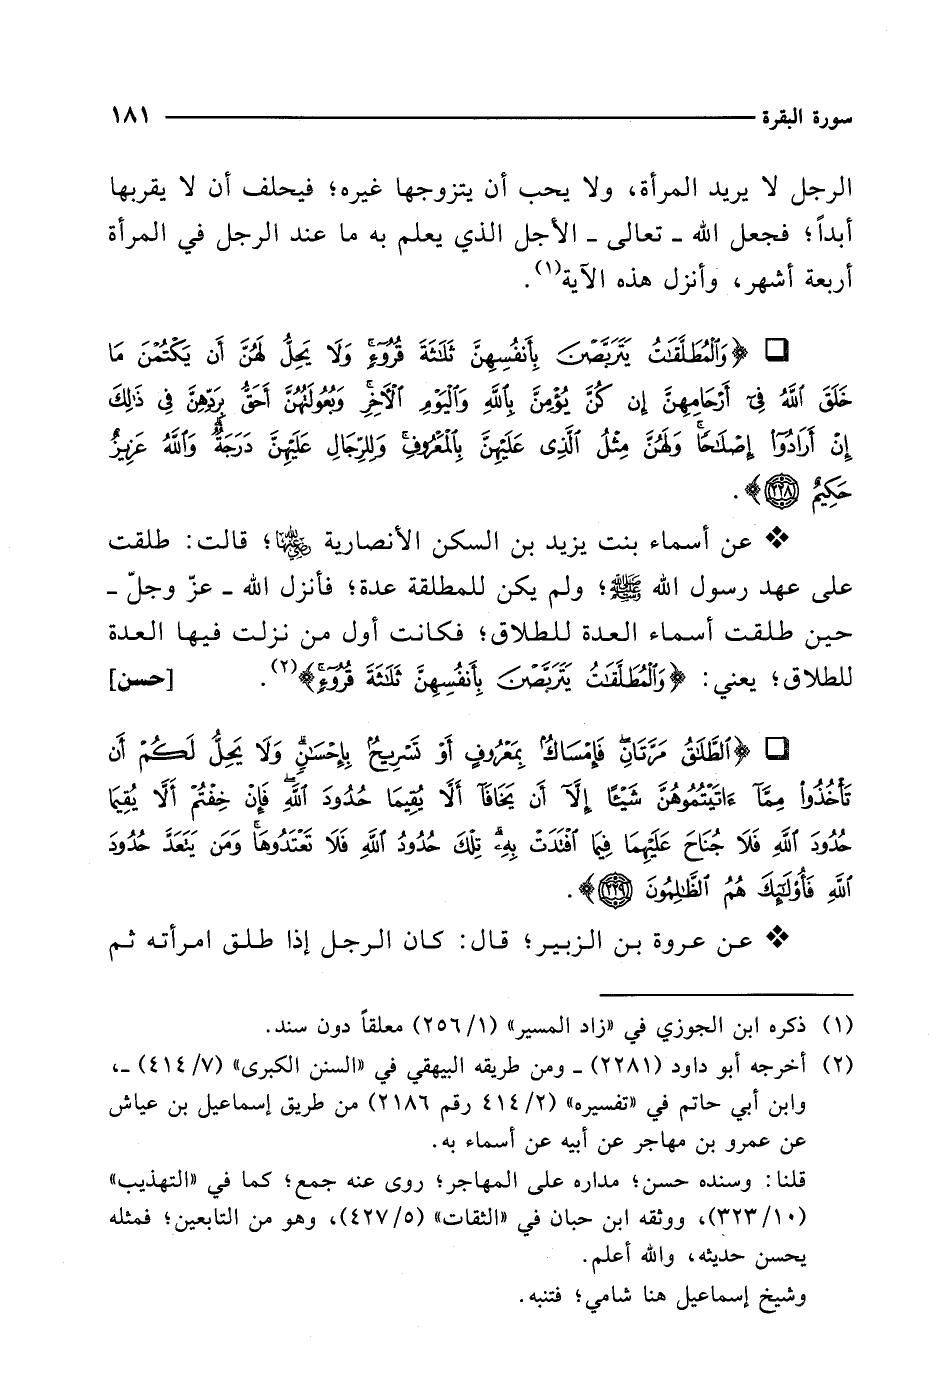 سورة البقرة ١٨١
الرجل لا يريد المرأة، ولا يحب أن يتزوجها غيره؛ فيحلف أن لا يقربها
أبداً؛ فجعل الله ـ تعالى ـ الأجل الذي يعلم به ما عند الرجل في المرأة
أربعة أشهر، وأنزل هذه الآية(١).
❑ ﴿وَٱلْمُطَلَّقَٰتُ يَتَرَبَّصْنَ بِأَنفُسِهِنَّ ثَلَٰثَةَ قُرُوٓءٍ ۚ وَلَا يَحِلُّ لَهُنَّ أَن يَكْتُمْنَ مَا
خَلَقَ ٱللَّهُ فِىٓ أَرْحَامِهِنَّ إِن كُنَّ يُؤْمِنَّ بِٱللَّهِ وَٱلْيَوْمِ ٱلْءَاخِرِ ۚ وَبُعُولَتُهُنَّ أَحَقُّ بِرَدِّهِنَّ فِى ذَٰلِكَ
إِنْ أَرَادُوٓا۟ إِصْلَٰحًا ۚ وَلَهُنَّ مِثْلُ ٱلَّذِى عَلَيْهِنَّ بِٱلْمَعْرُوفِ ۚ وَلِلرِّجَالِ عَلَيْهِنَّ دَرَجَةٌ ۗ وَٱللَّهُ عَزِيزٌ
حَكِيمٌ ٢٢٨﴾.
❖ عن أسماء بنت يزيد بن السكن الأنصارية رضي الله عنها؛ قالت: طلقت
على عهد رسول الله ﷺ؛ ولم يكن للمطلقة عدة؛ فأنزل الله ـ عزّ وجلّ ـ
حين طلقت أسماء العدة للطلاق؛ فكانت أول من نزلت فيها العدة
للطلاق؛ يعني: ﴿وَٱلْمُطَلَّقَٰتُ يَتَرَبَّصْنَ بِأَنفُسِهِنَّ ثَلَٰثَةَ قُرُوٓءٍ ۚ﴾(٢). [حسن]
❑ ﴿ٱلطَّلَٰقُ مَرَّتَانِ ۖ فَإِمْسَاكٌۢ بِمَعْرُوفٍ أَوْ تَسْرِيحٌۢ بِإِحْسَٰنٍ ۗ وَلَا يَحِلُّ لَكُمْ أَن
تَأْخُذُوا۟ مِمَّآ ءَاتَيْتُمُوهُنَّ شَيْـًٔا إِلَّآ أَن يَخَافَآ أَلَّا يُقِيمَا حُدُودَ ٱللَّهِ ۖ فَإِنْ خِفْتُمْ أَلَّا يُقِيمَا
حُدُودَ ٱللَّهِ فَلَا جُنَاحَ عَلَيْهِمَا فِيمَا ٱفْتَدَتْ بِهِۦ ۗ تِلْكَ حُدُودُ ٱللَّهِ فَلَا تَعْتَدُوهَا ۚ وَمَن يَتَعَدَّ حُدُودَ
ٱللَّهِ فَأُو۟لَٰٓئِكَ هُمُ ٱلظَّٰلِمُونَ ٢٢٩﴾.
❖ عن عروة بن الزبير؛ قال: كان الرجل إذا طلق امرأته ثم
(١) ذكره ابن الجوزي في «زاد المسير» (١/ ٢٥٦) معلقاً دون سند.
(٢) أخرجه أبو داود (٢٢٨١) ـ ومن طريقه البيهقي في «السنن الكبرى» (٧/ ٤١٤) ـ،
وابن أبي حاتم في «تفسيره» (٢/ ٤١٤ رقم ٢١٨٦) من طريق إسماعيل بن عياش
عن عمرو بن مهاجر عن أبيه عن أسماء به.
قلنا: وسنده حسن؛ مداره على المهاجر؛ روى عنه جمع؛ كما في «التهذيب»
(١٠/ ٣٢٣)، ووثقه ابن حبان في «الثقات» (٥/ ٤٢٧)، وهو من التابعين؛ فمثله
يحسن حديثه، والله أعلم.
وشيخ إسماعيل هنا شامي؛ فتنبه.